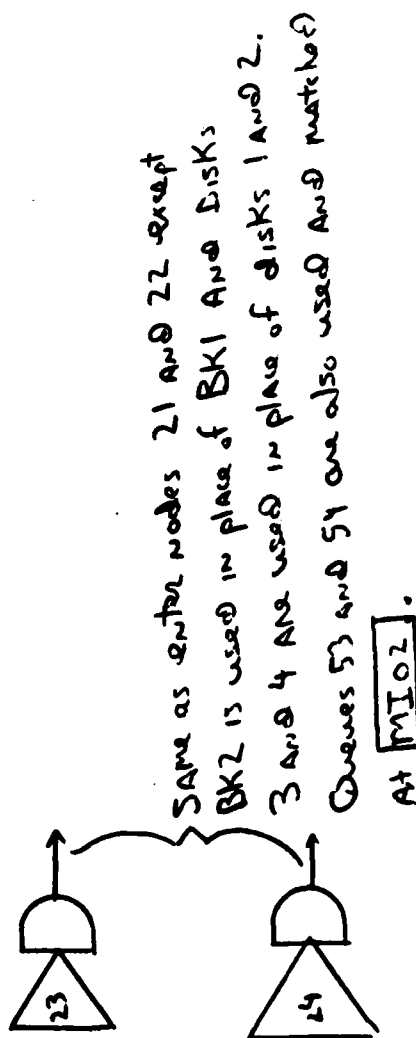 23
24
SAME as enter nodes 21 AND 22 except
BK2 is used in place of BK1 AND Disks
3 AND 4 ARE used in place of disks 1 AND 2.
Queues 53 AND 54 are also used AND matched
At MIO2.